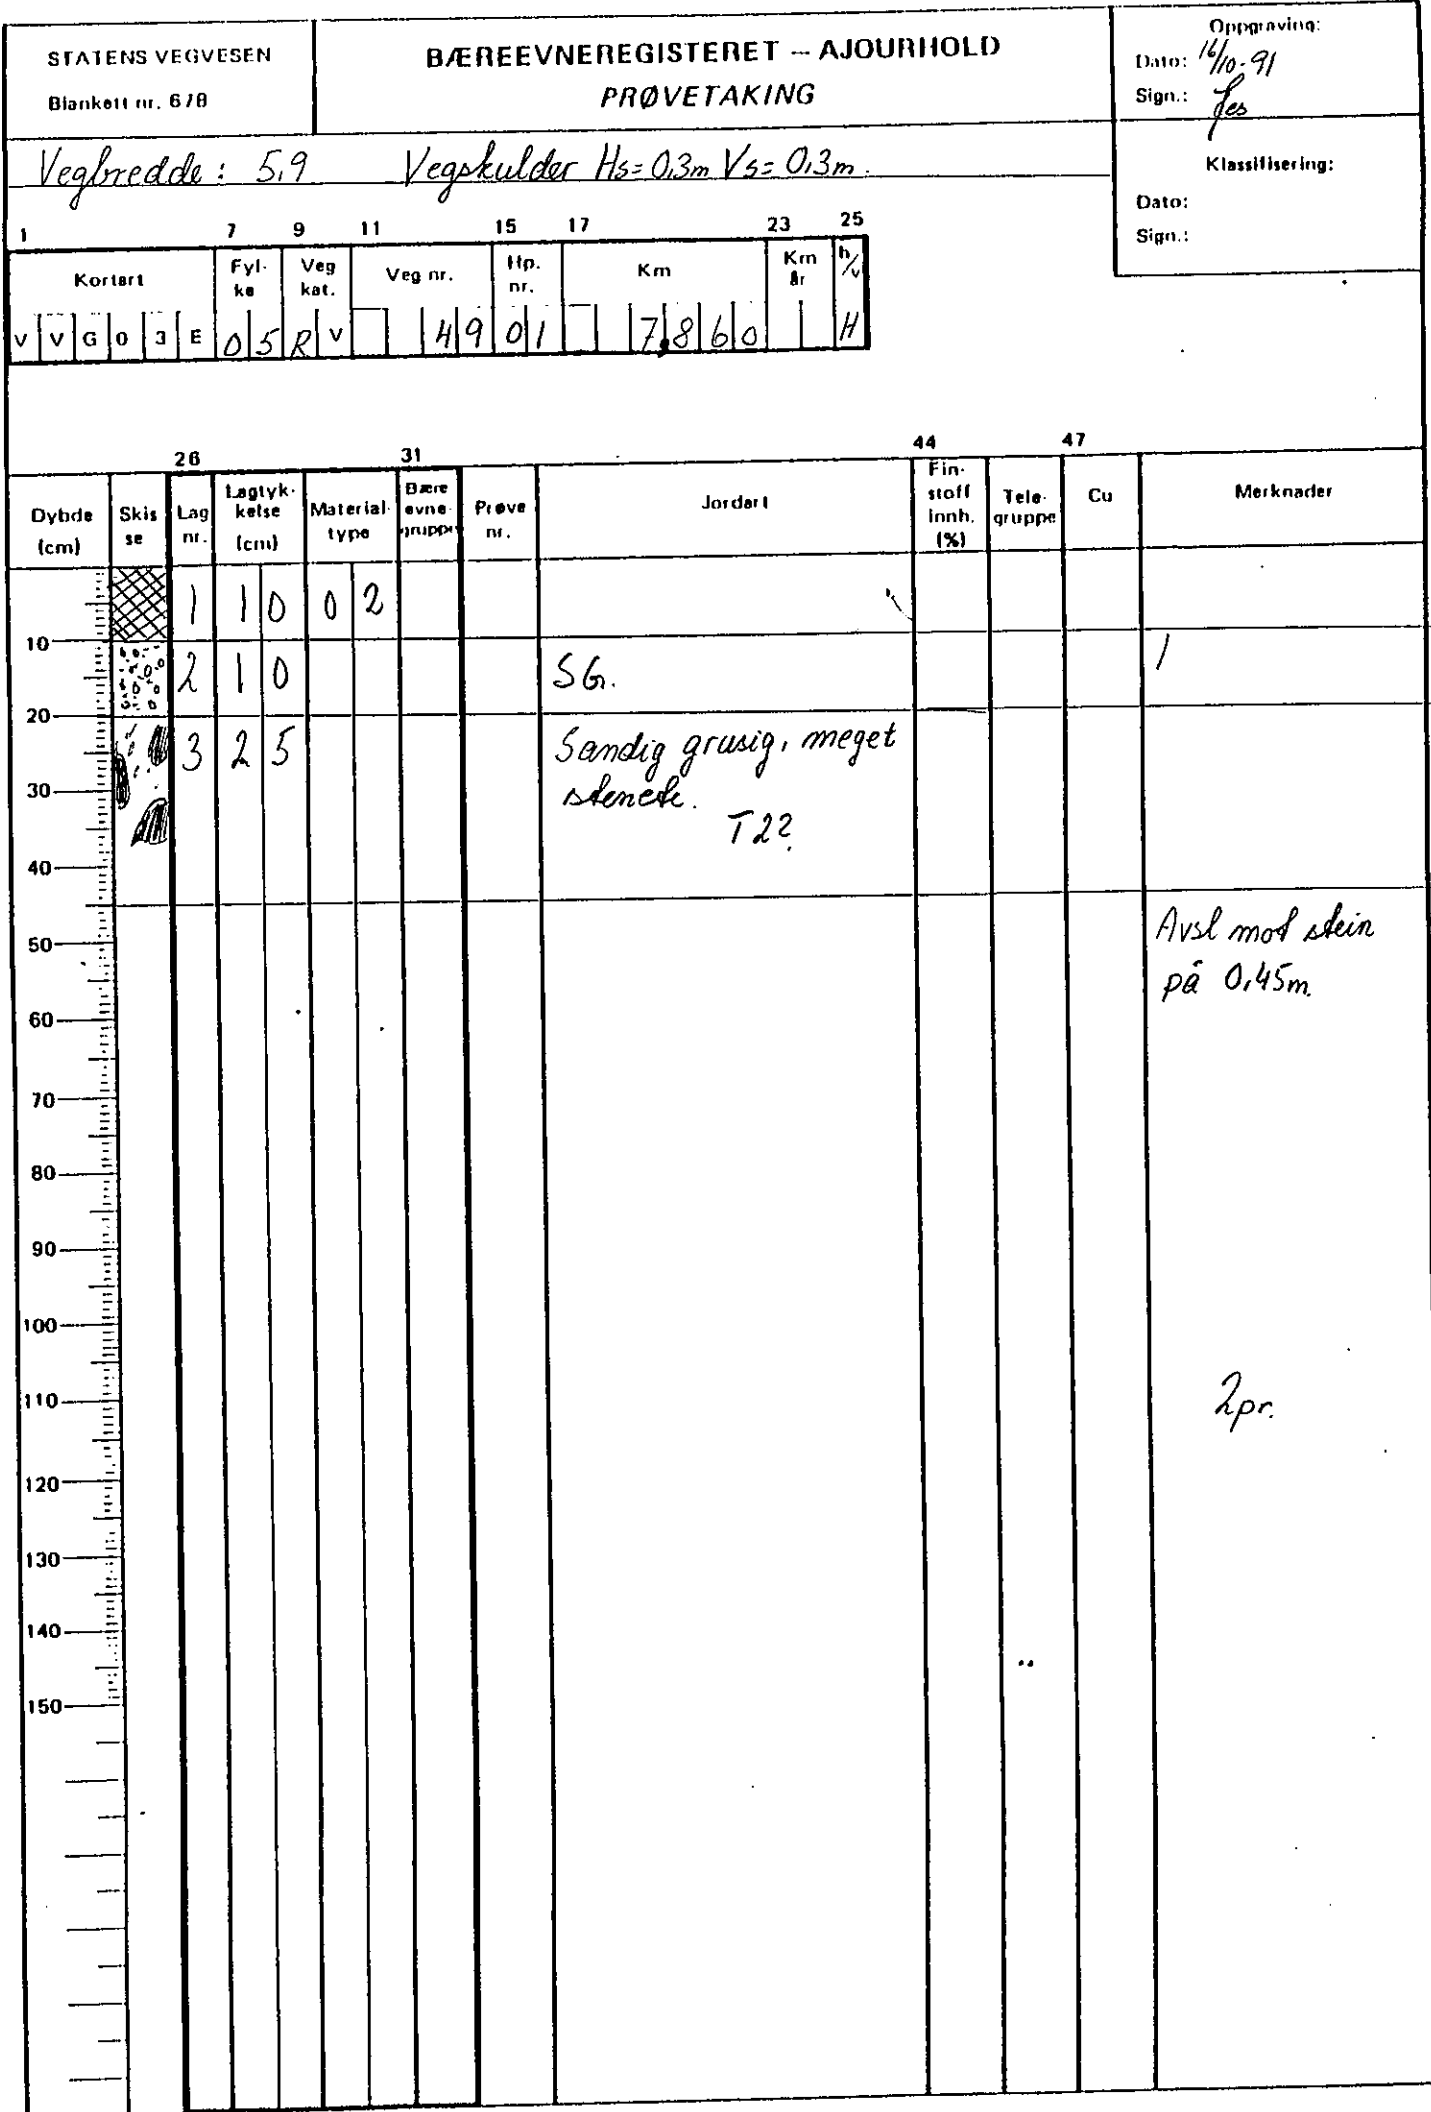 STATENS VEGVESEN
Blankett nr. 678
BÆREEVNEREGISTERET – AJOURHOLD
PRØVETAKING
Oppgraving:
Dato: 16/10-91
Sign.:
Klassifisering:
Dato:
Sign.:
Vegbredde: 5,9 Vegskulder Hs=0,3m Vs=0,3m.
1 7 9 11 15 17 23 25
Kortart Fyl-ke Veg kat. Veg nr. Hp. nr. Km Km år h/v
V V G 0 3 E 0 5 R V 4 9 0 1 7,8 6 0 H
26 31 44 47
Dybde (cm) Skis se Lag nr. Lagtyk-kelse (cm) Material-type Bære evne-gruppe Prøve nr. Jordart Fin-stoff innh. (%) Tele-gruppe Cu Merknader
1 1 0 0 2
10
2 1 0 SG. 1
20
3 2 5 Sandig grusig, meget
30 stenete.
T2?
40
Avsl mot stein
50
på 0,45m.
60
70
80
90
100
110 2pr.
120
130
140
150